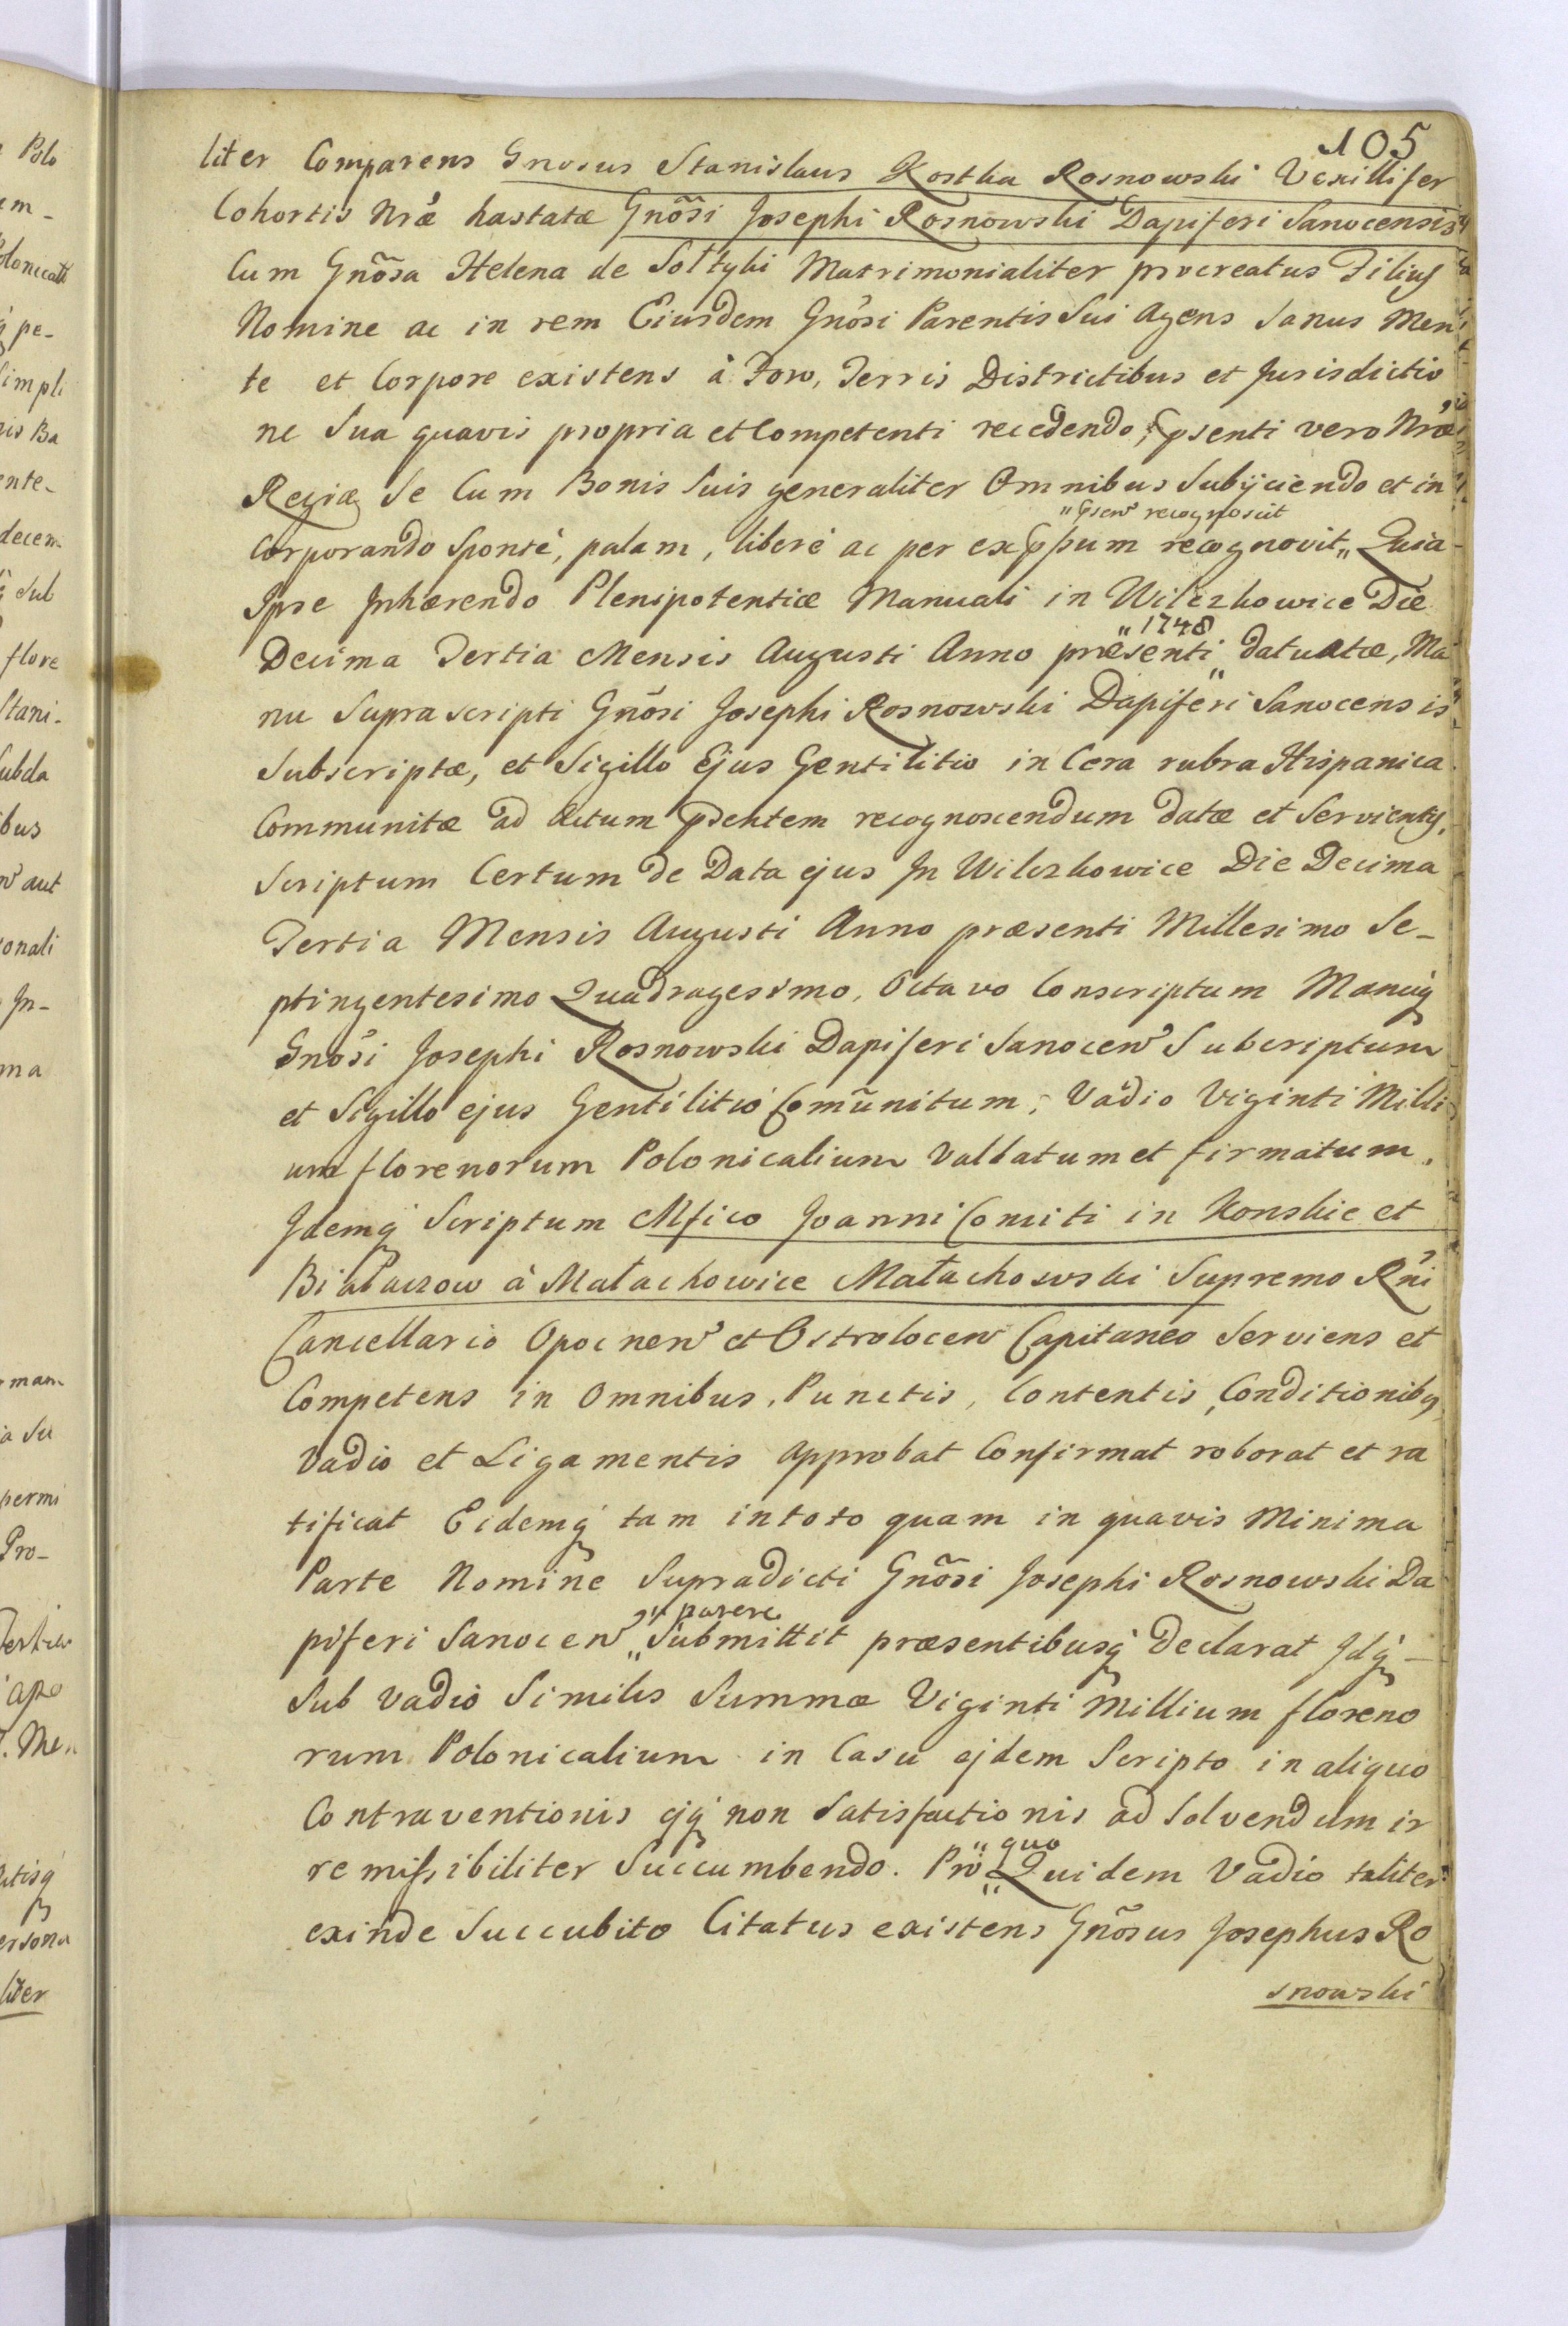 105
liter Comparens Gnosus Stanislaus Kostka Rosnowski Vexillifer
Cohortis Nræ hastatæ Gnõsi Josephi Rosnowski Dapiferi Sanocensis
Cum Gnõsa Helena de Sołtyki Matrimonialiter procreatus Filius
Nomine ac in rem Eiusdem Gnõsi Parentis Sui Agens Sanus Men
te et Corpore existens à Foro, Terris Districtibus et Jurisdictio
ne Sua quavis propria et Competenti recedendo, psenti vero Nræ
Regiæ Se Cum Bonis Suis generaliter Omnibus Subijciendo et in
"psen recognoscit
Corporando Sponte, palam, libere ac per expssum recognovit" Quia
Ipse Inhærendo Plenipotentiæ Manuali in Wilczkowice Die
"1748
Decima Tertia Mensis Augusti Anno præsenti" datuatæ, Ma
nu Suprascripti Gnõsi Josephi Rosnowski Dapiferi Sanocensis
Subscriptæ, et Sigillo Ejus Gentilitio in Cera rubra Hispanica
Communitæ ad Actum psentem recognoscendum datæ et Servientis,
Scriptum Certum de Data ejus In Wilczkowice Die Decima
Tertia Mensis Augusti Anno præsenti Millesimo Se-
ptingentesimo Quadragesimo, Octavo Conscriptum Manuq
Gnõsi Josephi Rosnowski Dapiferi Sanocen Subcriptum
et Sigillo ejus Gentilitio Comũnitum, Vadio Viginti Milli
um florenorum Polonicalium Vallatum et firmatum,
Idemq Scriptum Mfico Joanni Comiti in Konskie et
Białaczow à Małachowice Małachowski Supremo Rni
Cancellario Opocnen et Ostrolocen Capitaneo Serviens et
Competens in Omnibus, Punctis, Contentis, Conditionibq
Vadio et Ligamentis approbat Confirmat roborat et ra
tificat Eidemq tam in toto quam in quavis Minima
Parte Nomine Supradicti Gnõsi Josephi Rosnowski Da
" parere
piferi Sanocen "Submittit præsentibusq declarat Idq -
Sub vadio Similis Summæ Viginti Millium floreno
rum Polonicalium in Casu ejdem Scripto in aliquo
Contraventionis ejq non Satisfactionis ad Solvendum ir
"quo
remissibiliter Succumbendo. Pro "Quidem Vadio taliter
exinde Succubito Citatus existens Gnõsus Josephus Ro
snowski